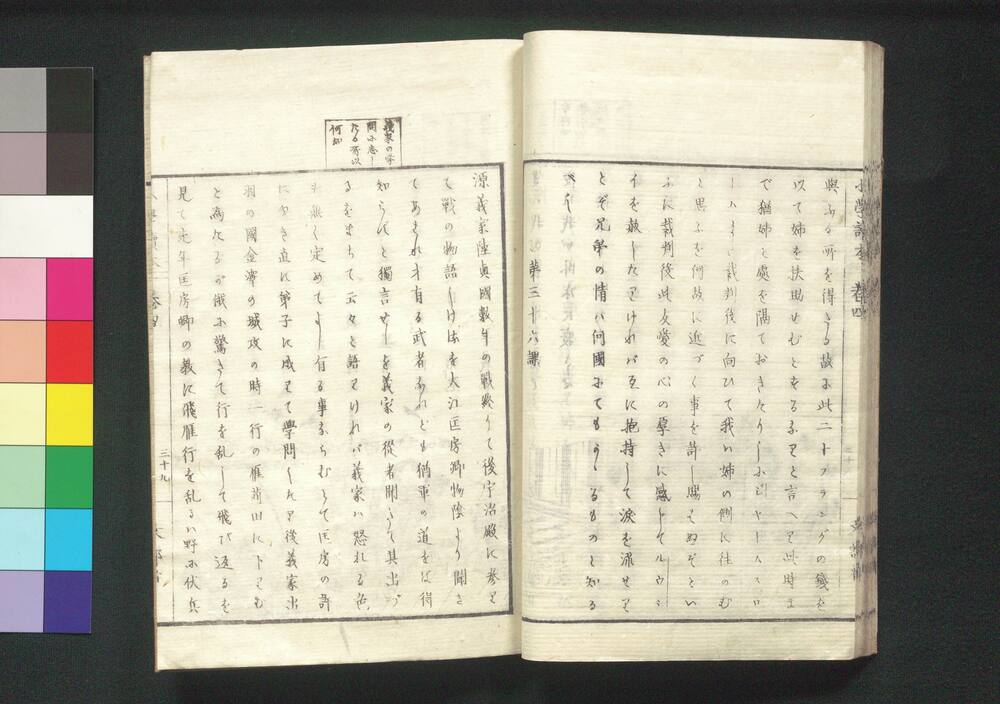 小學讀本 卷四
與ふる所を得きる故に此二十フランクの幾を
以て姉を扶助せむとするなりと言へり此時ま
で猶姉と處を隔ておきたりしに
しハまた裁判後に向ひて我い姉の側に往のむ
と思ふを何故に近づく事を許し賜はぬぞとい
ふに裁判後此友愛の心の厚きに感じてルウ
イを赦したりけれバ互に抱持して涙を流せり
とぞ兄弟の情ハ何國にてもかゝるものと知る
べし
第三十六課
義家の學
問に志し
たる所以
何如
源義家陸奥國數年の戰終りて後宇治殿に參り
て戰の物語しけるを大江匡房卿物陰より聞き
てあはれ才有る武者なれども猶軍の道をば得
知らじと獨言せしを義家の從者聞ゝて其出づ
るをまちて云々と語りけれバ義家ハ怒れる色
も無く定めてよし有る事ならむとて匡房の許
にゆき直に弟子に成りて學問したり後義家出
羽の國金澤の城攻の時一行の雁苅田に下りむ
と為たるが俄に驚きて行を乱して飛び返るを
見て先年匡房卿の教に飛雁行を乱るハ野に伏兵
卷四
三十九